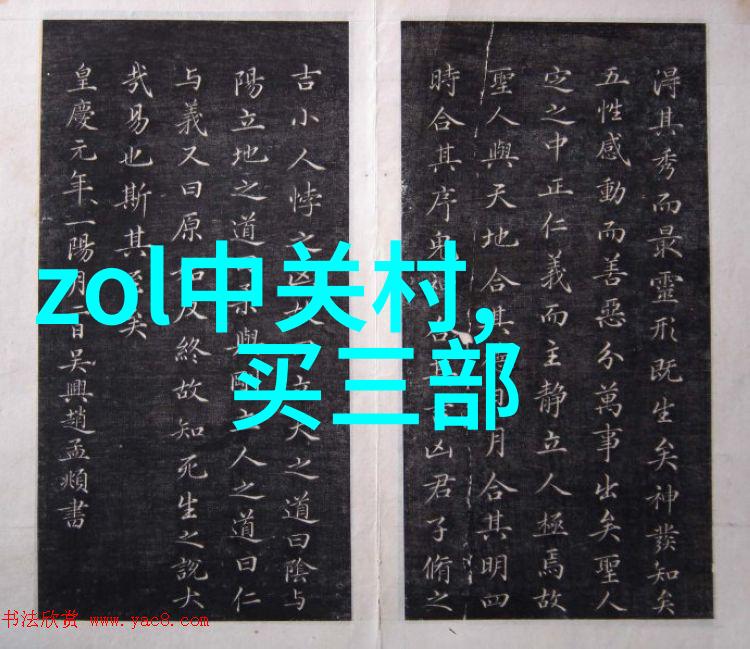 得其秀而最靈形既生矣神發知矣
五性感動而善惡分萬事出矣聖人
定之中正仁義而主靜立人極焉故
聖人與天地合其日月合其明四
時合其序鬼凶君子脩之
吉小人悖之凶故立天之道曰陰与
陽立地之道柔與立人之道曰仁
与義又曰原反終故知死生之說大
哉易也斯其矣
皇慶元年一陽月一日吳興趙孟頫書
zol中关村,
买三部
书法欣赏 www.yac8.com